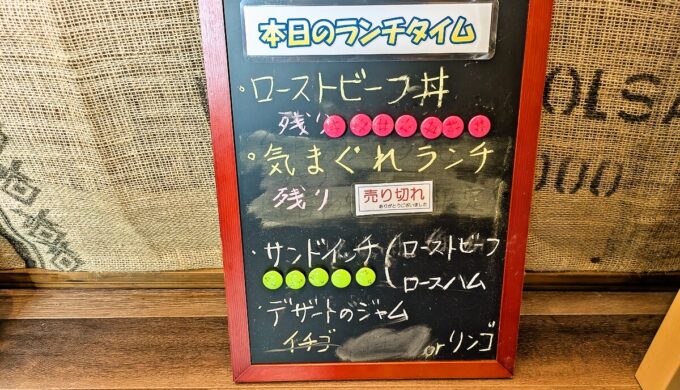 本日のランチタイム
・ローストビーフ丼
残り
・気まぐれランチ
残り 売り切れ
ありがとうございました
・サンドイッチ(ローストビーフ
(ロースハム
・デザートのジャム
イチゴ or リンゴ
OLSA
000